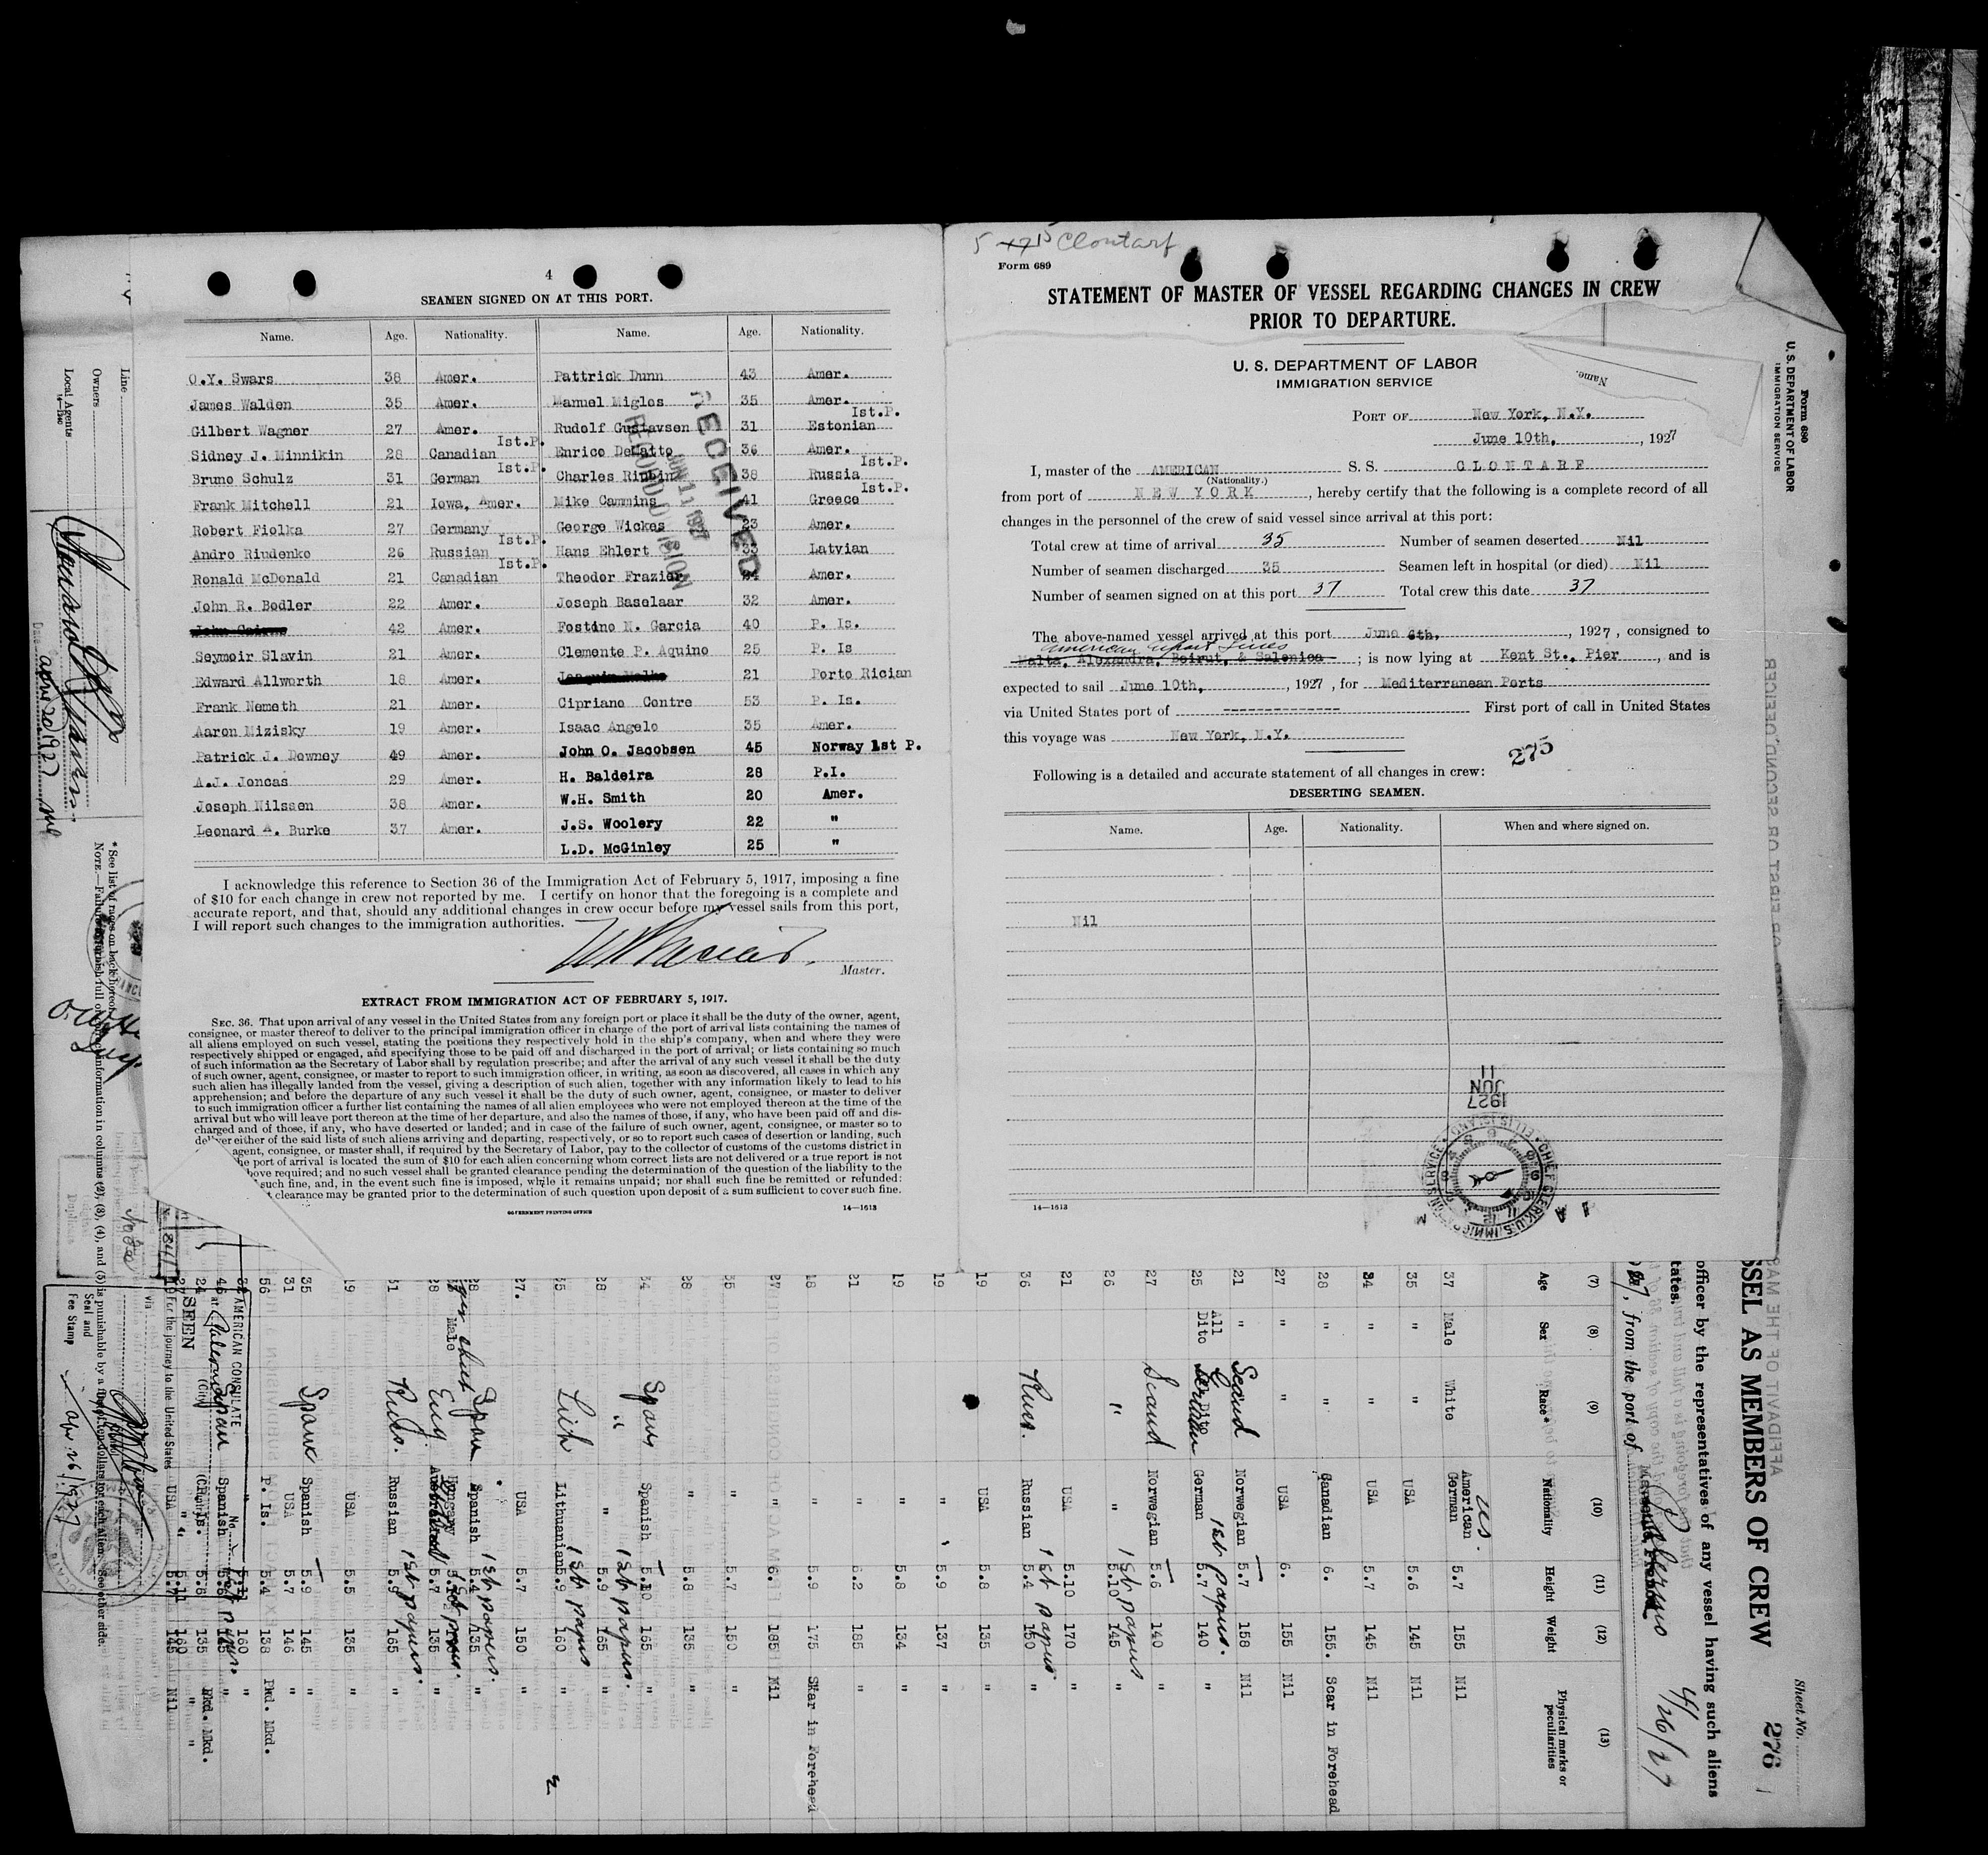 4
SEAMEN SIGNED ON AT THIS PORT.
Name. Age. Nationality. Name. Age. Nationality.
O.Y. Swars 38 Amer. Pattrick Dunn 43 Amer.
James Walden 35 Amer. Manuel Miglos 35 Amer.
Gilbert Wagner 27 Amer. Rudolf Gustavsen 31 Estonian Ist.P.
Sidney J. Minnikin 28 Canadian Ist.P. Enrico DeMatto 36 Amer.
Bruno Schulz 31 German Ist.P. Charles 38 Russia Ist.P.
Frank Mitchell 21 Iowa, Amer. Mike Cammins 41 Greece Ist.P.
Robert Fiolka 27 Germany George Wickes 23 Amer.
Andro Riudenko 26 Russian Ist.P. Hans Ehlert 33 Latvian
Ronald McDonald 21 Canadian Ist.P. Theodor Frazier Amer.
John R. Bodler 22 Amer. Joseph Baselaar 32 Amer.
42 Amer. Fostino N. Garcia 40 P. Is.
Seymoir Slavin 21 Amer. Clemente P. Aquino 25 P. Is
Edward Allworth 18 Amer. 21 Porto Rician
Frank Nemeth 21 Amer. Cipriano Contre 53 P. Is.
Aaron Mizisky 19 Amer. Isaac Angelo 35 Amer.
Patrick J. Downey 49 Amer. John O. Jacobsen 45 Norway 1st P.
A.J. Joncas 29 Amer. H. Baldeira 28 P.I.
Joseph Nilssen 38 Amer. W.H. Smith 20 Amer.
Leonard A. Burke 37 Amer. J.S. Woolery 22 "
L.D. McGinley 25 "
RECEIVED
JUN 11 1927
RECORD DIVISION
I acknowledge this reference to Section 36 of the Immigration Act of February 5, 1917, imposing a fine
of $10 for each change in crew not reported by me. I certify on honor that the foregoing is a complete and
accurate report, and that, should any additional changes in crew occur before my vessel sails from this port,
I will report such changes to the immigration authorities.
Master.
EXTRACT FROM IMMIGRATION ACT OF FEBRUARY 5, 1917.
SEC. 36. That upon arrival of any vessel in the United States from any foreign port or place it shall be the duty of the owner, agent,
consignee, or master thereof to deliver to the principal immigration officer in charge of the port of arrival lists containing the names of
all aliens employed on such vessel, stating the positions they respectively hold in the ship's company, when and where they were
respectively shipped or engaged, and specifying those to be paid off and discharged in the port of arrival; or lists containing so much
of such information as the Secretary of Labor shall by regulation prescribe; and after the arrival of any such vessel it shall be the duty
of such owner, agent, consignee, or master to report to such immigration officer, in writing, as soon as discovered, all cases in which any
such alien has illegally landed from the vessel, giving a description of such alien, together with any information likely to lead to his
apprehension; and before the departure of any such vessel it shall be the duty of such owner, agent, consignee, or master to deliver
to such immigration officer a further list containing the names of all alien employees who were not employed thereon at the time of the
arrival but who will leave port thereon at the time of her departure, and also the names of those, if any, who have been paid off and dis-
charged and of those, if any, who have deserted or landed; and in case of the failure of such owner, agent, consignee, or master so to
deliver either of the said lists of such aliens arriving and departing, respectively, or so to report such cases of desertion or landing, such
agent, consignee, or master shall, if required by the Secretary of Labor, pay to the collector of customs of the customs district in
he port of arrival is located the sum of $10 for each alien concerning whom correct lists are not delivered or a true report is not
bove required; and no such vessel shall be granted clearance pending the determination of the question of the liability to the
such fine, and, in the event such fine is imposed, while it remains unpaid; nor shall such fine be remitted or refunded:
t clearance may be granted prior to the determination of such question upon deposit of a sum sufficient to cover such fine.
GOVERNMENT PRINTING OFFICE 14—1613
5 Clontarf
Form 689
STATEMENT OF MASTER OF VESSEL REGARDING CHANGES IN CREW
PRIOR TO DEPARTURE.
U. S. DEPARTMENT OF LABOR
IMMIGRATION SERVICE
Name.
PORT OF New York, N.Y.
June 10th, , 1927
I, master of the AMERICAN S. S. CLONTARF
(Nationality.)
from port of NEW YORK , hereby certify that the following is a complete record of all
changes in the personnel of the crew of said vessel since arrival at this port:
Total crew at time of arrival 35 Number of seamen deserted Nil
Number of seamen discharged 35 Seamen left in hospital (or died) Nil
Number of seamen signed on at this port 37 Total crew this date 37
The above-named vessel arrived at this port June 6th, , 1927, consigned to
American Export Lines
Malta, Alexandra, Beirut, & Salonica ; is now lying at Kent St., Pier , and is
expected to sail June 10th, , 1927, for Mediterranean Ports
via United States port of -------------- First port of call in United States
this voyage was New York, N.Y.
275
Following is a detailed and accurate statement of all changes in crew:
DESERTING SEAMEN.
Name. Age. Nationality. When and where signed on.
Nil
1927
JUN
11
CHIEF CLERK U.S. IMMIGRATION SERVICE ELLIS ISLAND
14—1613
Form 689
U. S. DEPARTMENT OF LABOR
IMMIGRATION SERVICE
Sheet No.
276
SSEL AS MEMBERS OF CREW
officer by the representatives of any vessel having such aliens
tates.
, from the port of Palermo 4/26/27
(7) (8) (9) (10) (11) (12) (13)
Age Sex Race* Nationality Height Weight Physical marks or peculiarities
37 Male White American German US. 5.7 155 Nil
35 " " USA 5.6 145 Nil
34 " " USA 5.7 145 Nil
28 " " Canadian 6. 155. Scar in Forehead
27 " " USA 6. 155 Nil
21 " Scand Norwegian 5.7 158 Nil
25 All Dito German 5.7 140 " 1st papers.
27 Scand Norwegian 5.6 140 "
26 " " 5.10 145 " 1st papers
21 USA 5.10 170 "
36 Russ. Russian 5.4 150 " 1st papers
19 USA 5.8 135
19 " 5.9 137
19 " 5.8 134 "
21 " 6.2 185 "
18 " 5.9 175 Skar in Forehead
27 " 6. 185 Nil
35 " 5.7 150 "
38 " 5.8 135 "
34 Spans Spanish 5.10 165 " 1st papers.
28 " " 5.9 165 "
35 Lith Lithuanian 5.9 160 " 1st papers
27. USA 5.7 150 "
28 Span Spanish 5.4 135 " 1st papers.
28 Male Eng 5.7 135 "
31 Russ. Russian 5.9 165 " 1st papers.
19 USA 5.5 135 "
35 Spans Spanish 5.9 145 "
31 USA 5.7 146 "
56 P. Is. 5.4 138 Pkd. Mkd.
AMERICAN CONSULATE
No.
at Palermo
(City)
SEEN
For the journey to the United States
via
Seal and
Fee Stamp
Apr 26/1927
* See list of races on back hereof.
Line
Owners
Local Agents
April 20 1927